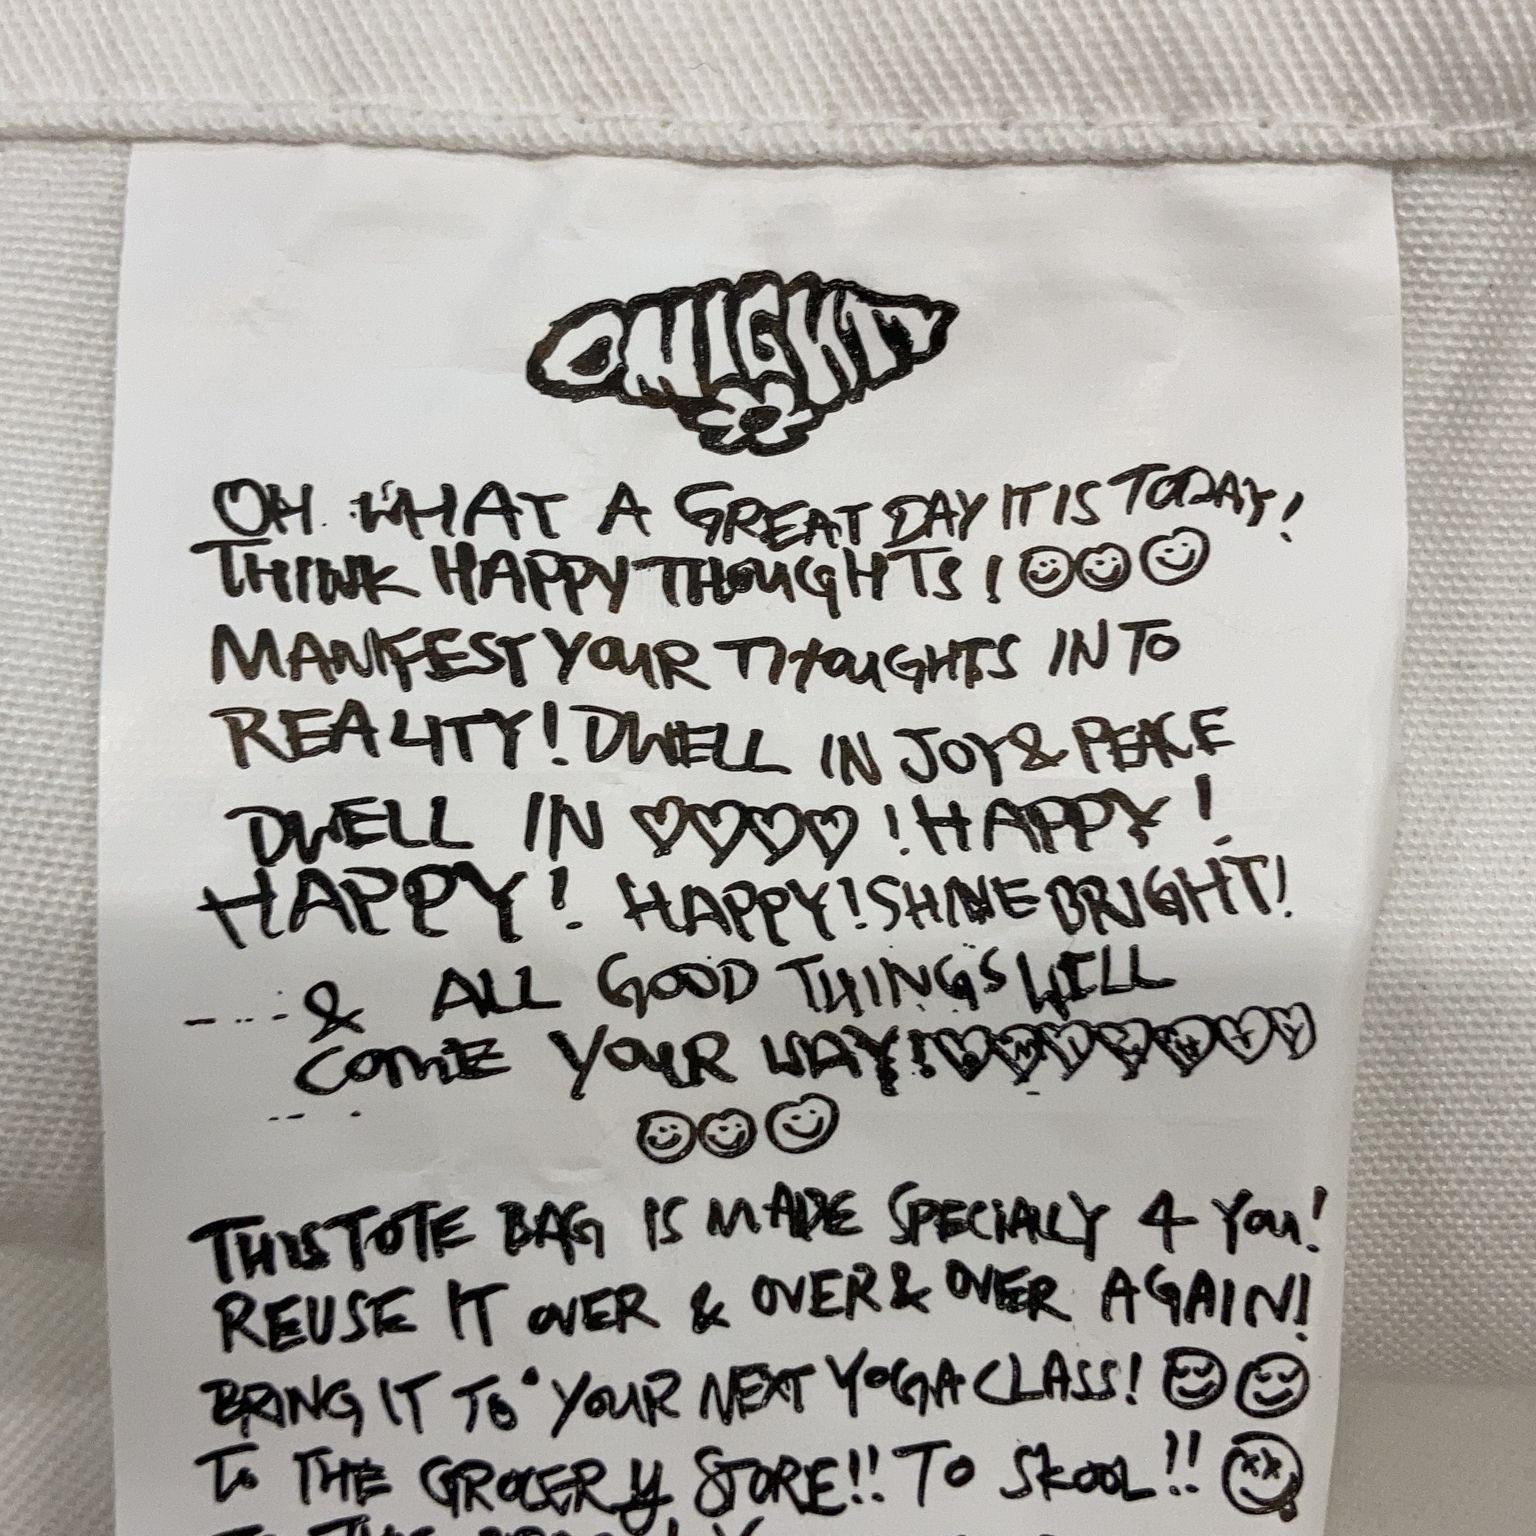 OMIGHTY
OH WHAT A GREAT DAY IT IS TODAY!
THINK HAPPY THOUGHTS!
MANIFEST YOUR THOUGHTS IN TO
REALITY! DWELL IN JOY & PEACE
DWELL IN ♡♡♡♡! HAPPY!
HAPPY! HAPPY! SHINE BRIGHT!
& ALL GOOD THINGS WILL
COME YOUR WAY! ♡♡♡♡♡♡♡
THIS TOTE BAG IS MADE SPECIALLY 4 YOU!
REUSE IT OVER & OVER & OVER AGAIN!
BRING IT TO YOUR NEXT YOGA CLASS!
TO THE GROCERY STORE!! TO SKOOL!!